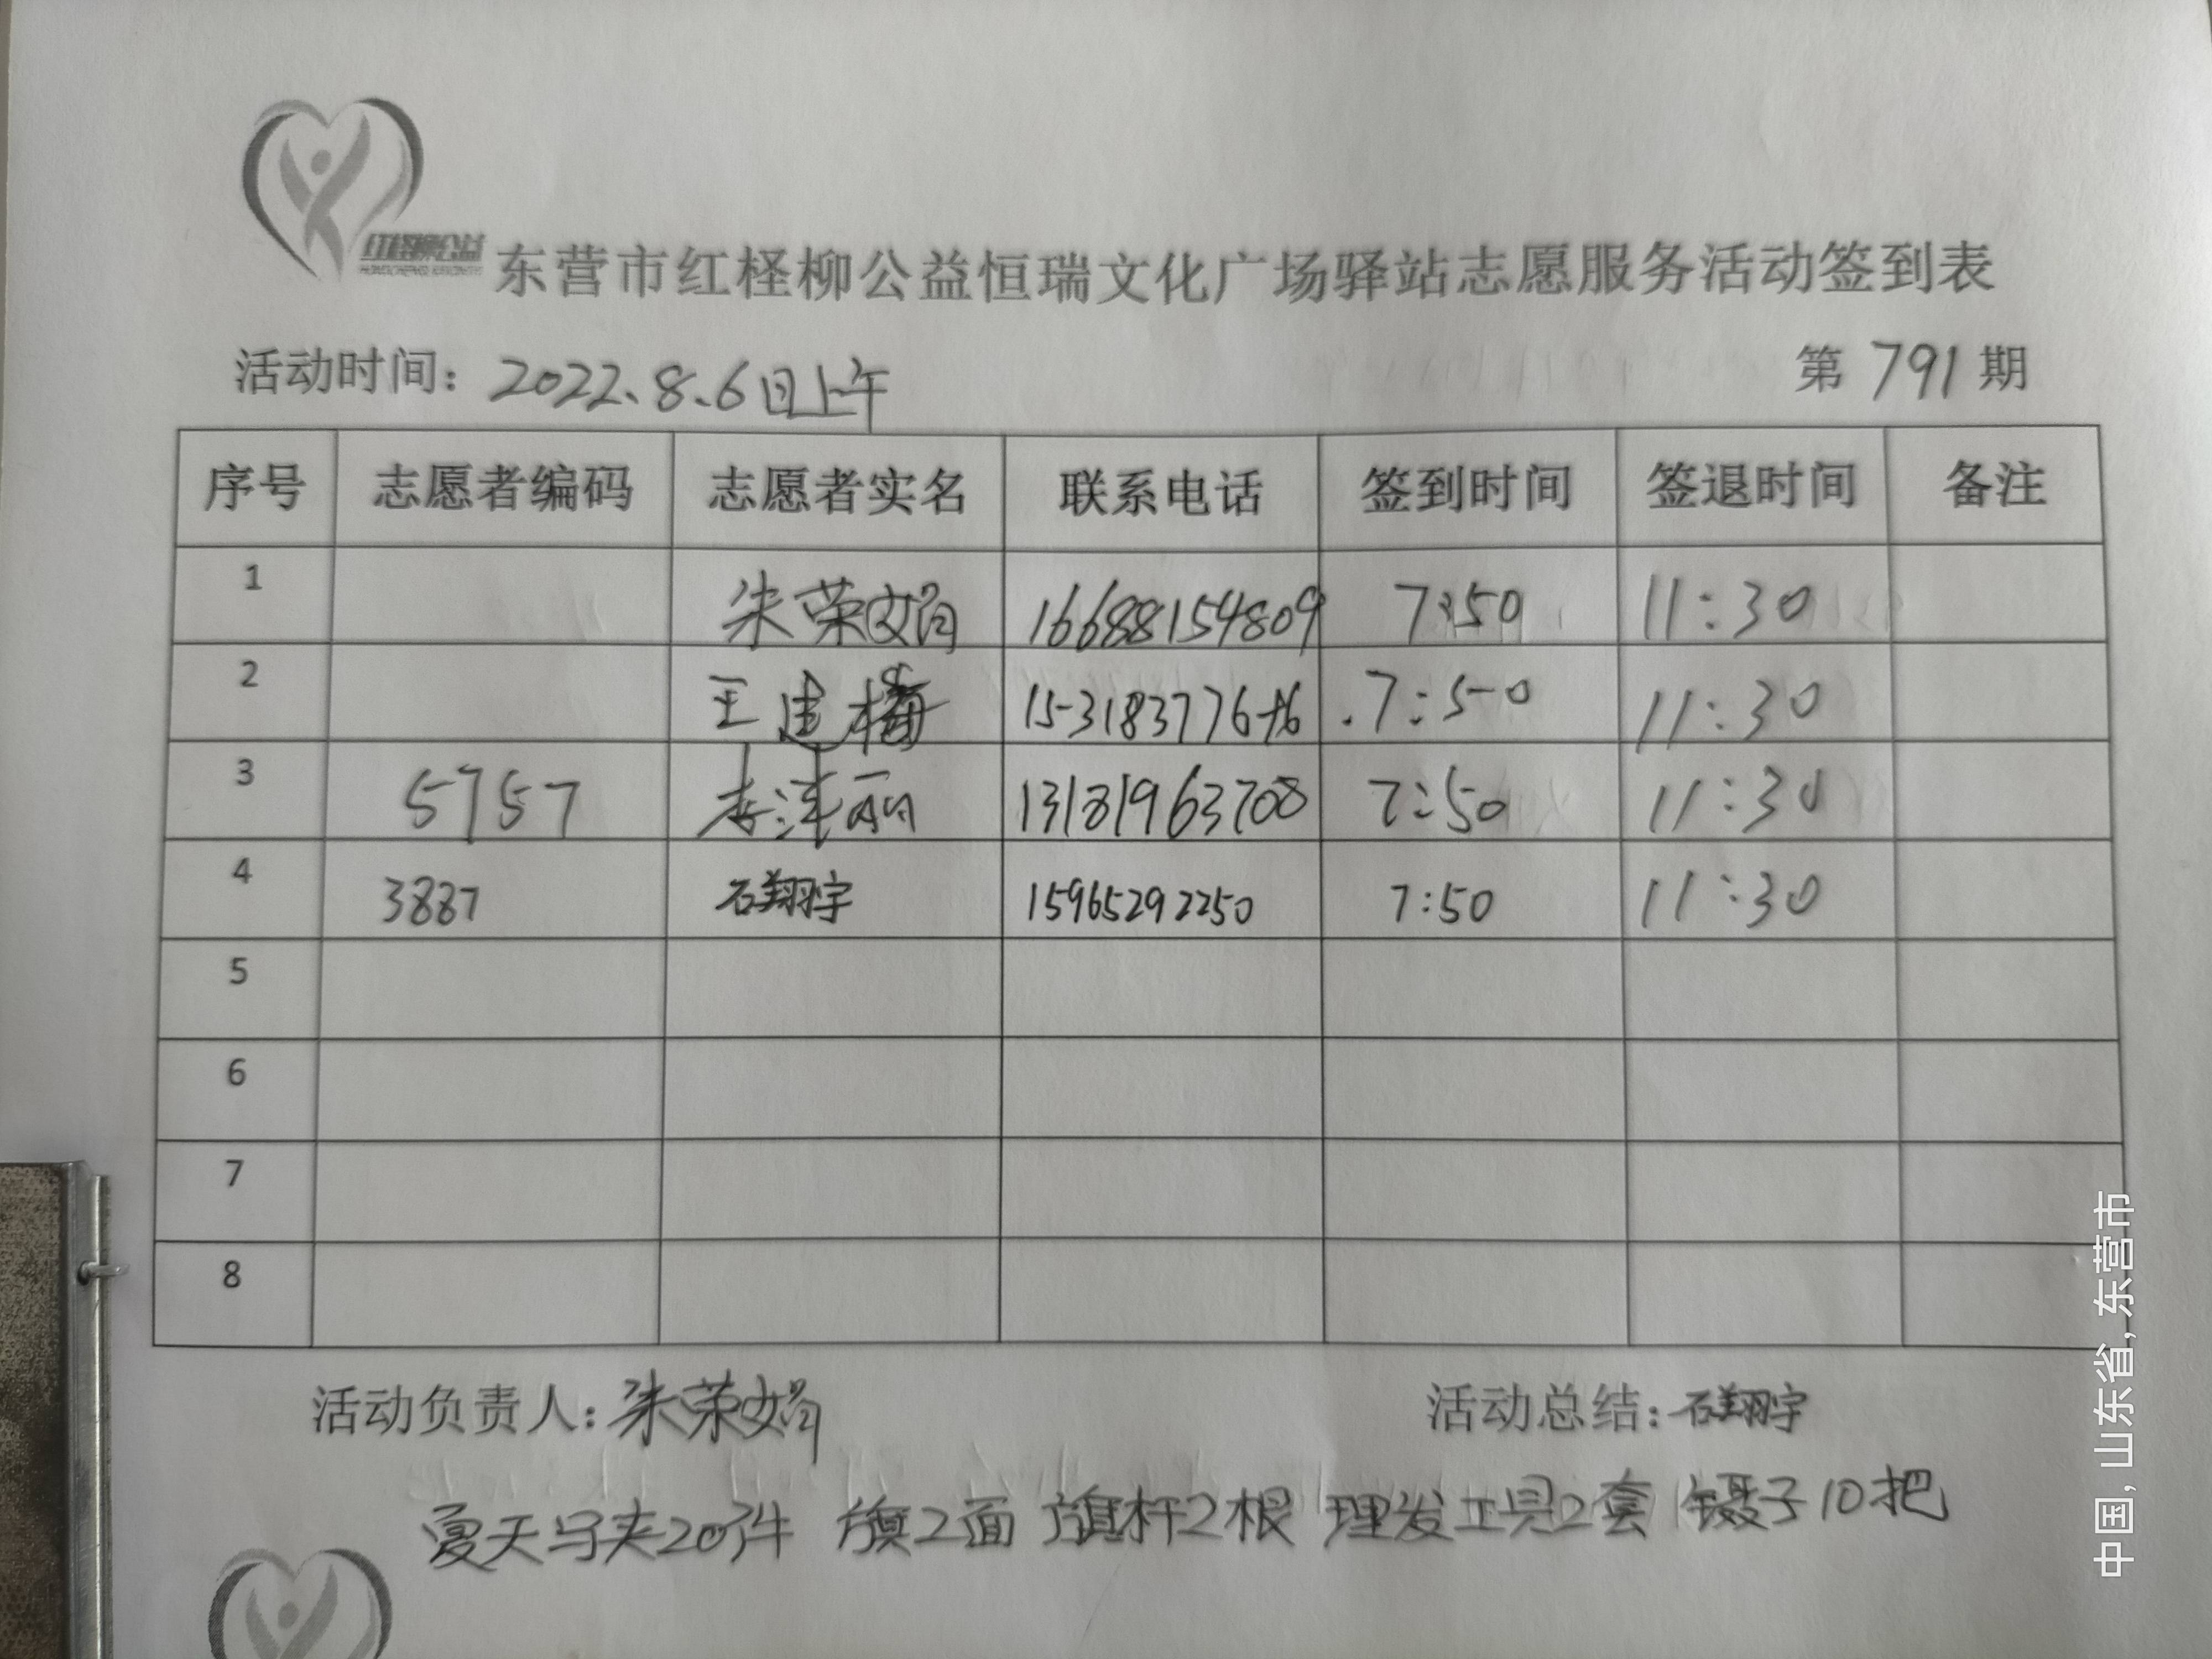 红柽柳公益
东营市红柽柳公益恒瑞文化广场驿站志愿服务活动签到表
活动时间：2022.8.6日上午 第791期
序号 志愿者编码 志愿者实名 联系电话 签到时间 签退时间 备注
1 朱荣娟 16688154809 7:50 11:30
2 王建梅 7:50 11:30
3 5757 李津丽 13181963708 7:50 11:30
4 3887 石翔宇 15965292250 7:50 11:30
5
6
7
8
活动负责人：朱荣娟 活动总结：石翔宇
夏天马夹20件 旗2面 旗杆2根 理发工具2套 镊子10把
中国, 山东省, 东营市